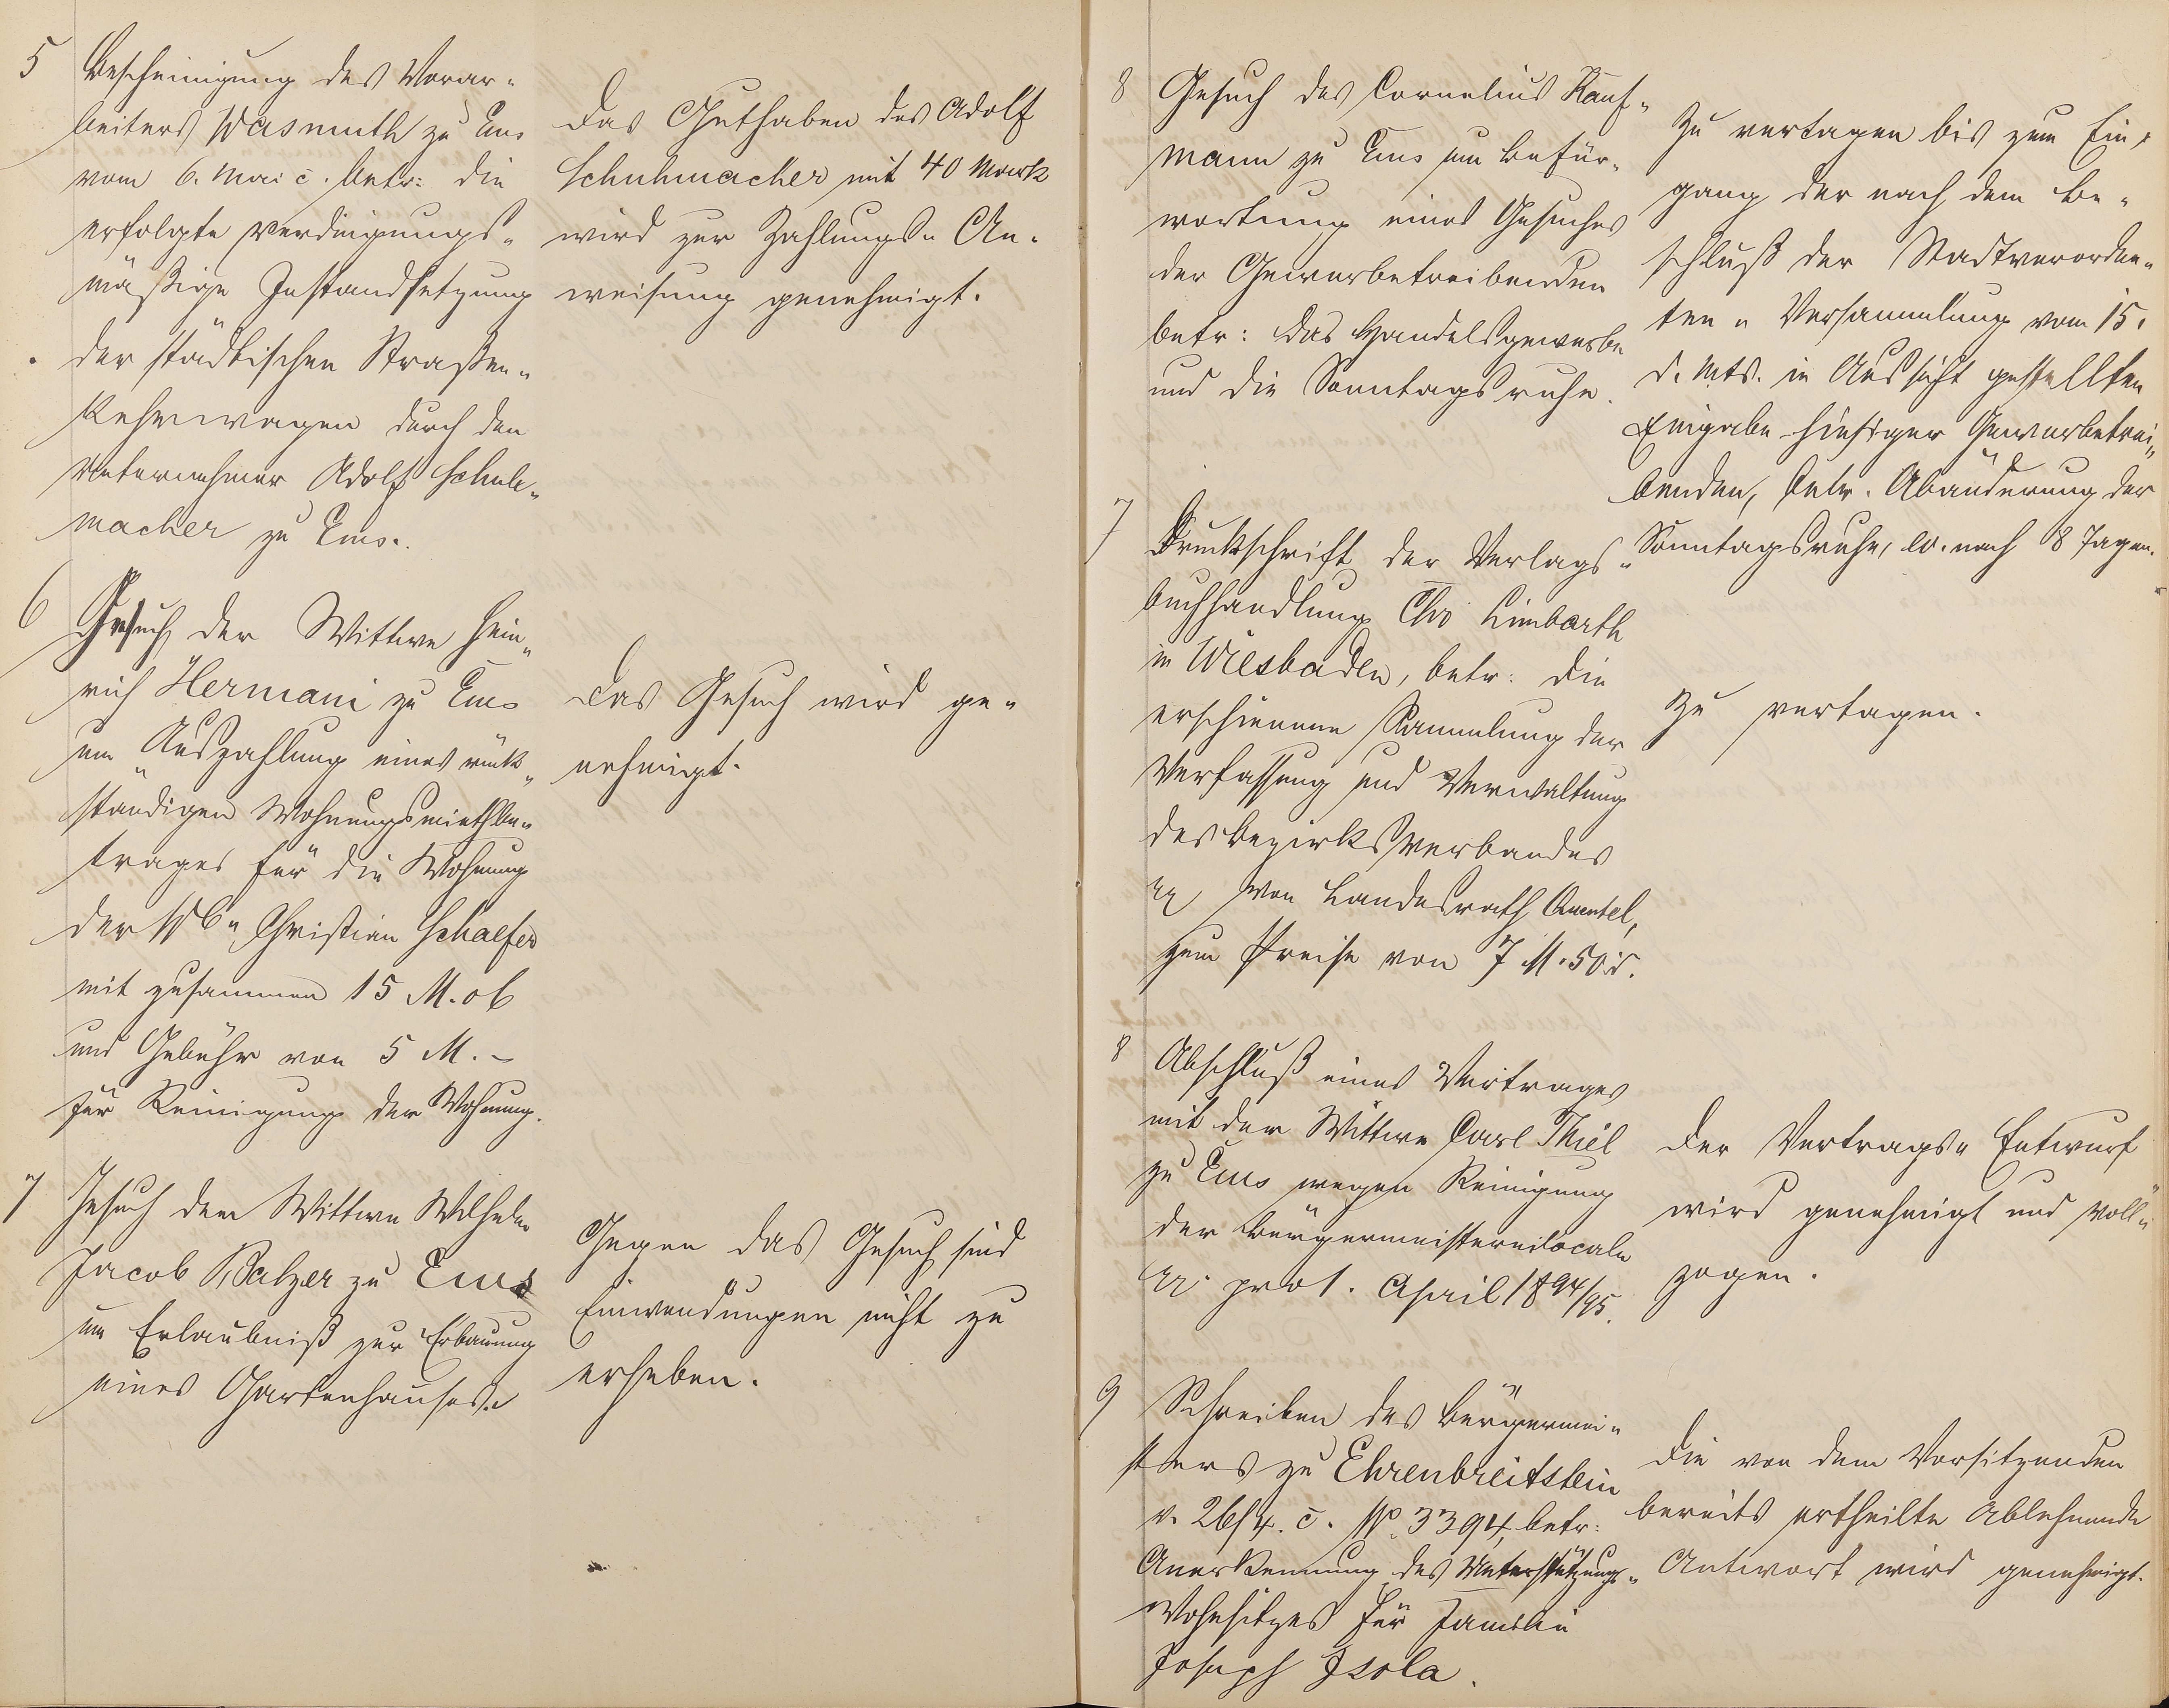 5 Bescheinigung des Vorar-
beiters Wasmuth zu Ems
vom 6. Mai c. betr: die
erfolgte verdingungs-
mäßige Instandsetzung
der städtischen Straßen-
kehrwagen durch den
Unternehmer Adolf Schuh-
macher zu Ems.
Das Guthaben des Adolf
Schuhmacher mit 40 Mark
wird zur Zahlungs- An-
weisung genehmigt.
6 Gesuch der Wittwe Hein-
rich Hermani zu Ems
um Auszahlung eines rück-
ständigen Wohnungsmiethbe-
trages für die Wohnung
der Wb. Christian Schaefer
mit zusammen 15 M. ob
und Gebühr von 5 M. -
für Reinigung der Wohnung.
Das Gesuch wird ge-
nehmigt.
7 Gesuch der Wittwe Wilhelm
Jacob Balzer zu Ems
um Erlaubniß zur Erbauung
eines Gartenhauses.
Gegen das Gesuch sind
Einwendungen nicht zu
erheben.
8 Gesuch des Cornelius Kauf-
mann zu Ems um Befür-
wortung eines Gesuches
der Gewerbetreibenden
betr: das Handelsgewerbe
und die Sonntagsruhe.
Zu vertagen bis zum Ein-
gang der nach dem Be-
schluß der Stadtverordne-
ten - Versammlung vom 15.
d. Mts. in Aussicht gestellten
Eingabe hiesiger Gewerbetrei-
benden, betr. Abänderung der
Sonntagsruhe, ev. nach 8 Tagen.
7 Druckschrift der Verlags-
buchhandlung Chr Limbarth
in Wiesbaden, betr: die
erschienene Sammlung der
Verfassung und Verwaltung
des Bezirksverbandes
von Landesrath Quentel,
zum Preise von 7 M. 50 d.
Zu vertagen.
8 Abschluß eines Vertrages
mit der Wittwe Carl Thiel
zu Ems wegen Reinigung
der Bürgermeistereilocale
pro 1. April 1894/95.
Der Vertrags- Entwurf
wird genehmigt und voll-
zogen.
9 Schreiben des Bürgermei-
sters zu Ehrenbreitstein
v. 26/4. c. No. 3394, betr:
Anerkennung des Unterstützungs-
wohnsitzes für Familie
Joseph Isola.
Die von dem Vorsitzenden
bereits ertheilte ablehnende
Antwort wird genehmigt.